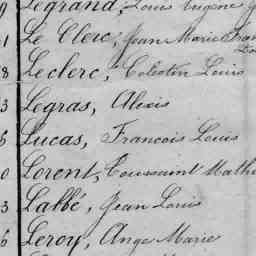 9 Legrand, Louis Eugène
1 Le Clerc, Jean Marie Fran
8 Leclerc, Celestin Louis
3 Legras, Alexis
5 Lucas, Francois Louis
0 Lorent, Toussaint Math
3 Labbé, Jean Louis
6 Leroy, Ange Marie